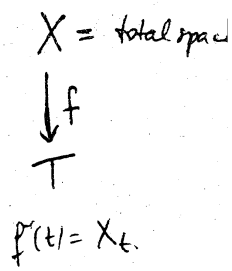 X = total spac
f
T
f⁻¹(t) = X_t.